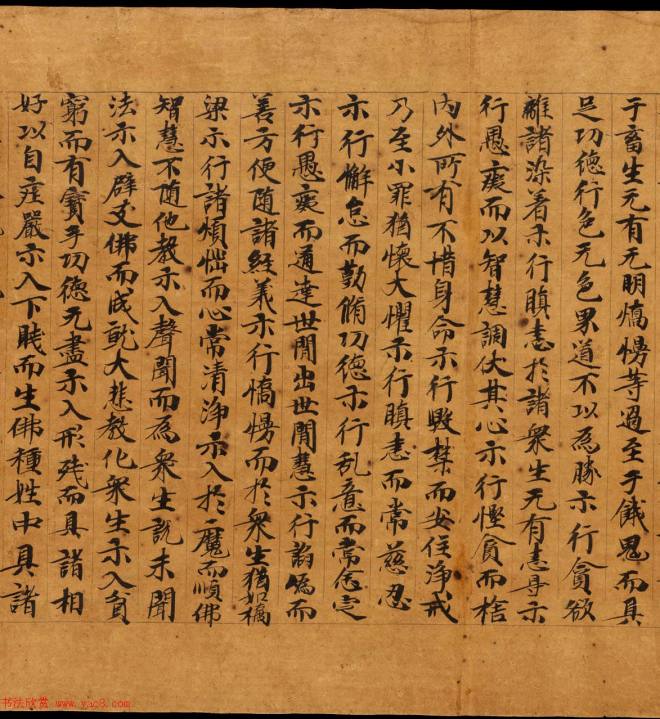 于畜生无有无明憍慢等過至于餓鬼而具
足功德行色无色界道不以為勝示行貪欲
離諸染著示行瞋恚於諸衆生无有恚㝵示
行愚癡而以智慧調伏其心示行慳貪而捨
内外所有不惜身命示行毀禁而安住淨戒
乃至小罪猶懷大懼示行瞋恚而常慈忍
示行懈怠而勤脩功德示行乱意而常念定
示行愚癡而通達世間出世間慧示行諂偽而
善方便隨諸經義示行憍慢而於衆生猶如橋
梁示行諸煩惱而心常清淨示入於魔而順佛
智慧不隨他教示入聲聞而為衆生說未聞
法示入辟支佛而成就大悲教化衆生示入貧
窮而有寶手功德无盡示入形殘而具諸相
好以自莊嚴示入下賤而生佛種姓中具諸
书法欣赏 www.yac8.com